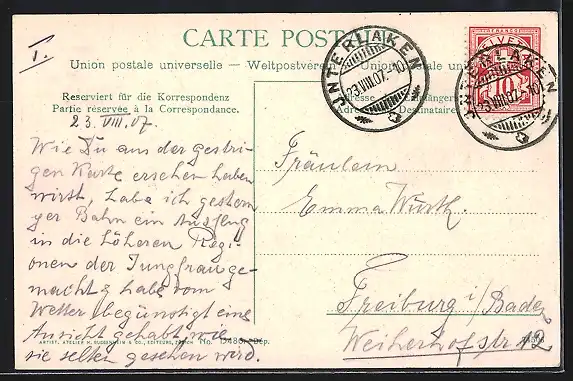 I.
CARTE POSTALE
Union postale universelle – Weltpostverein – Union postale
Reserviert für die Korrespondenz
Partie réservée à la Correspondance.
INTERLAKEN
23.VIII.07.-10
INTERLAKEN
23.VIII.07.-10
HELVETIA
10
23. VIII. 07.
Wie Du aus der gestri-
gen Karte ersehen haben
wirst, habe ich gestern
per Bahn ein Ausflug
in die höheren Regi-
onen der Jungfrau ge-
macht & habe vom
Wetter begünstigt eine
Ansicht gehabt, wie
sie selten gesehen wird.
Fräulein
Emma Wurth.
Freiburg i/Baden
Weiherhofstr 12
ARTIST. ATELIER H. GUGGENHEIM & CO., EDITEURS, ZÜRICH No. Dép.